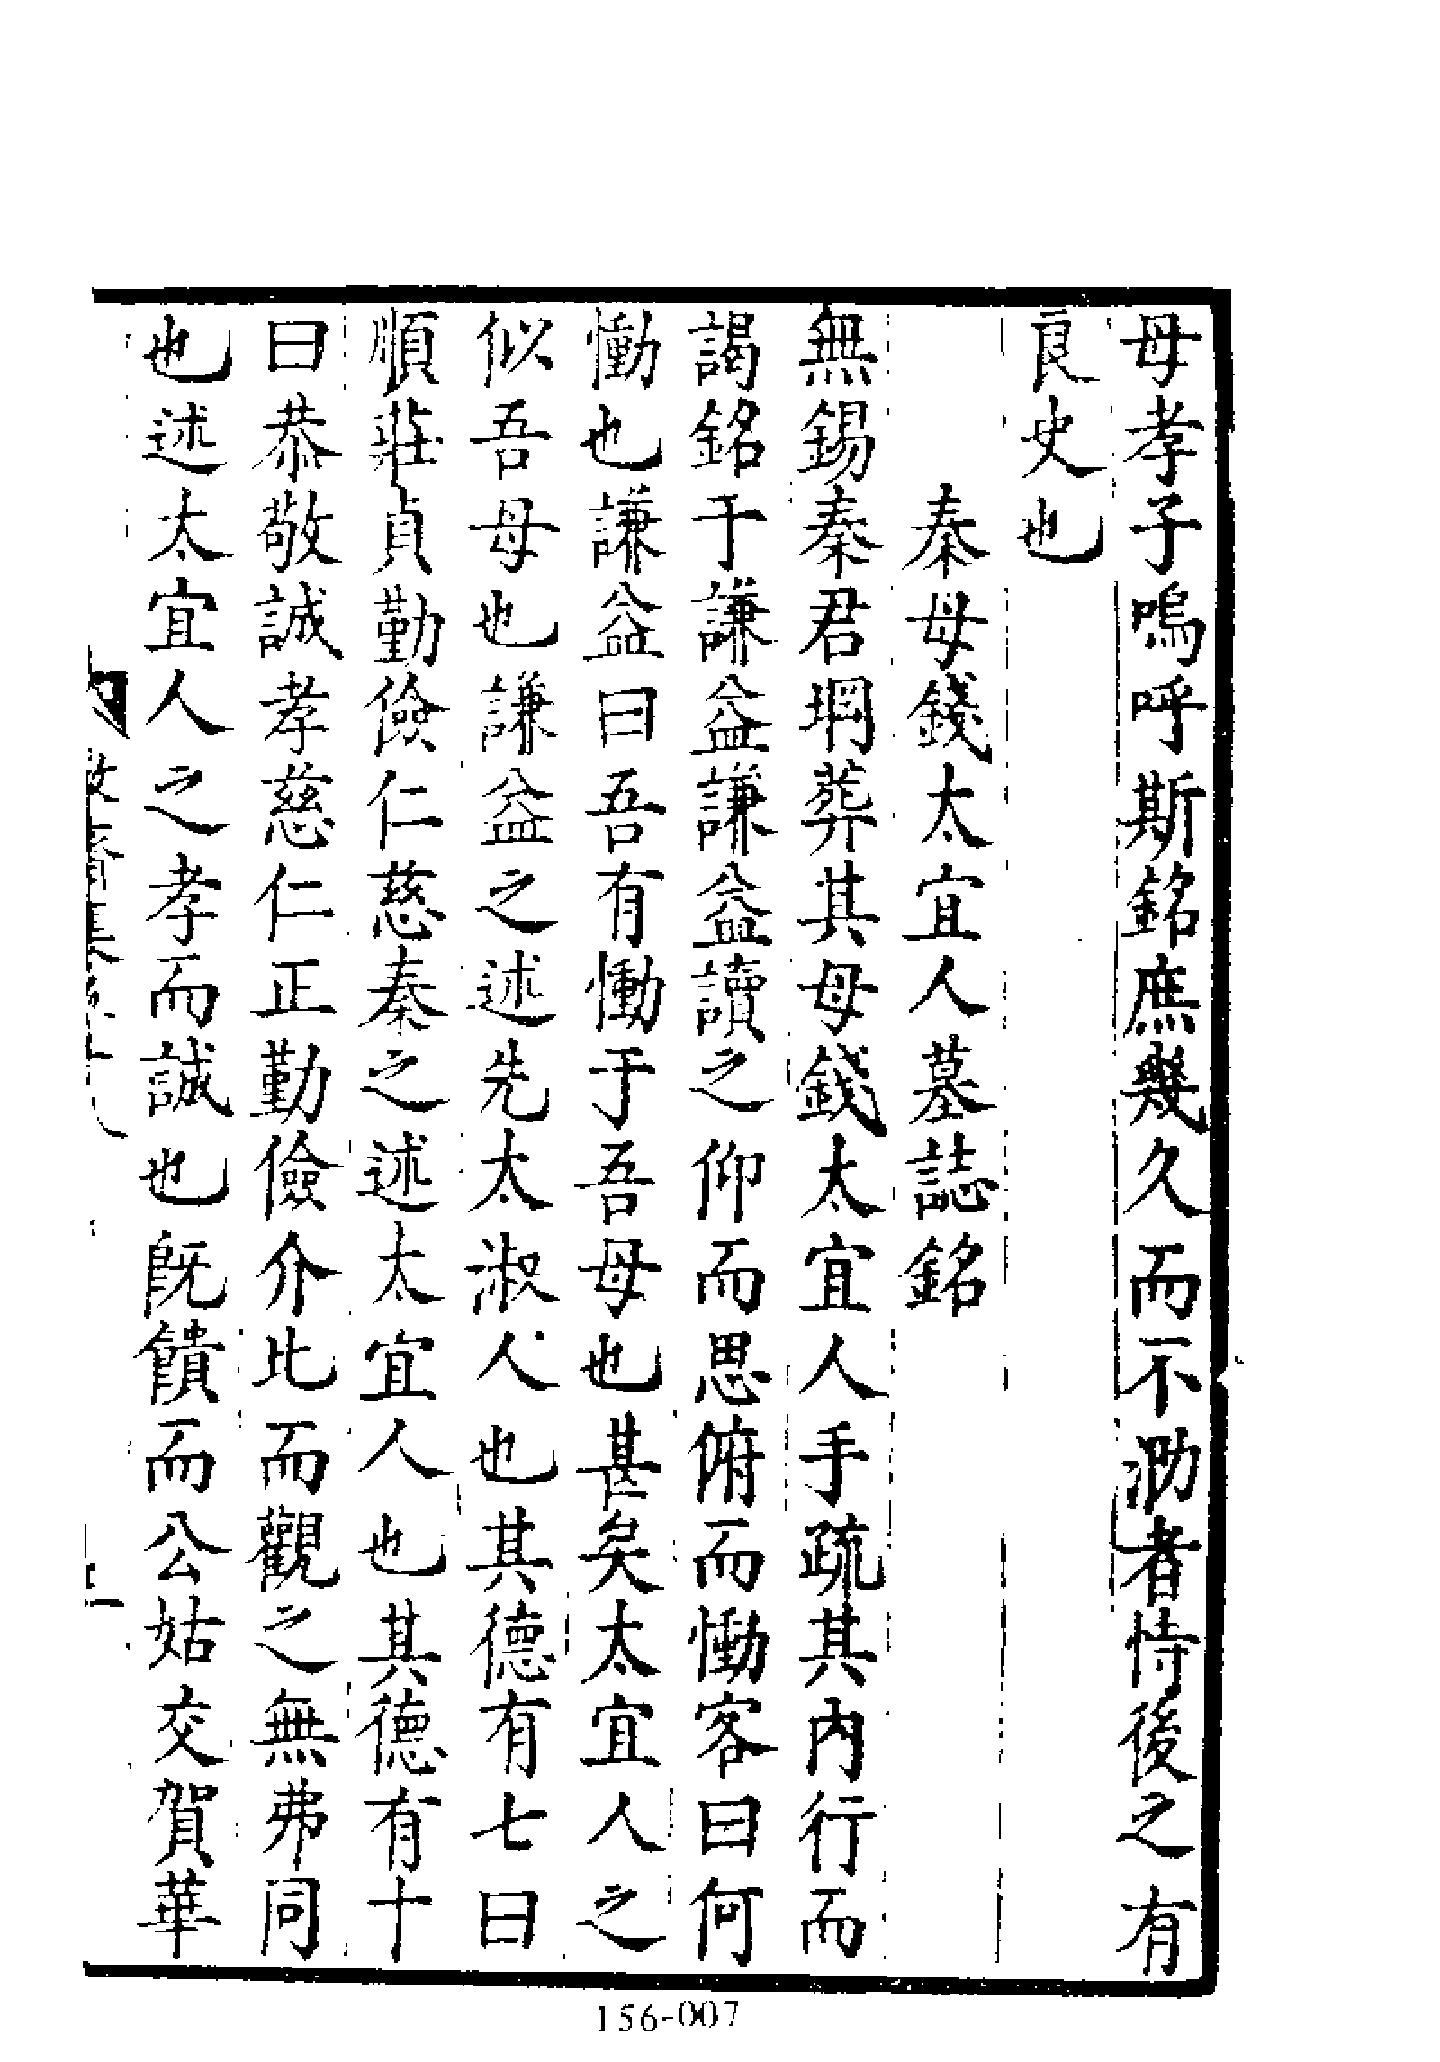 母孝子嗚呼斯銘庶幾久而不泐者恃後之有
良史也
秦母錢太宜人墓誌銘
無錫秦君堈葬其母錢太宜人手疏其內行而
謁銘于謙益謙益讀之仰而思俯而慟客曰何
慟也謙益曰吾有慟于吾母也甚矣太宜人之
似吾母也謙益之述先太淑人也其德有七曰
順莊貞勤儉仁慈秦之述太宜人也其德有十
曰恭敬誠孝慈仁正勤儉介比而觀之無弗同
也述太宜人之孝而誠也既饋而公姑交賀華
156-007